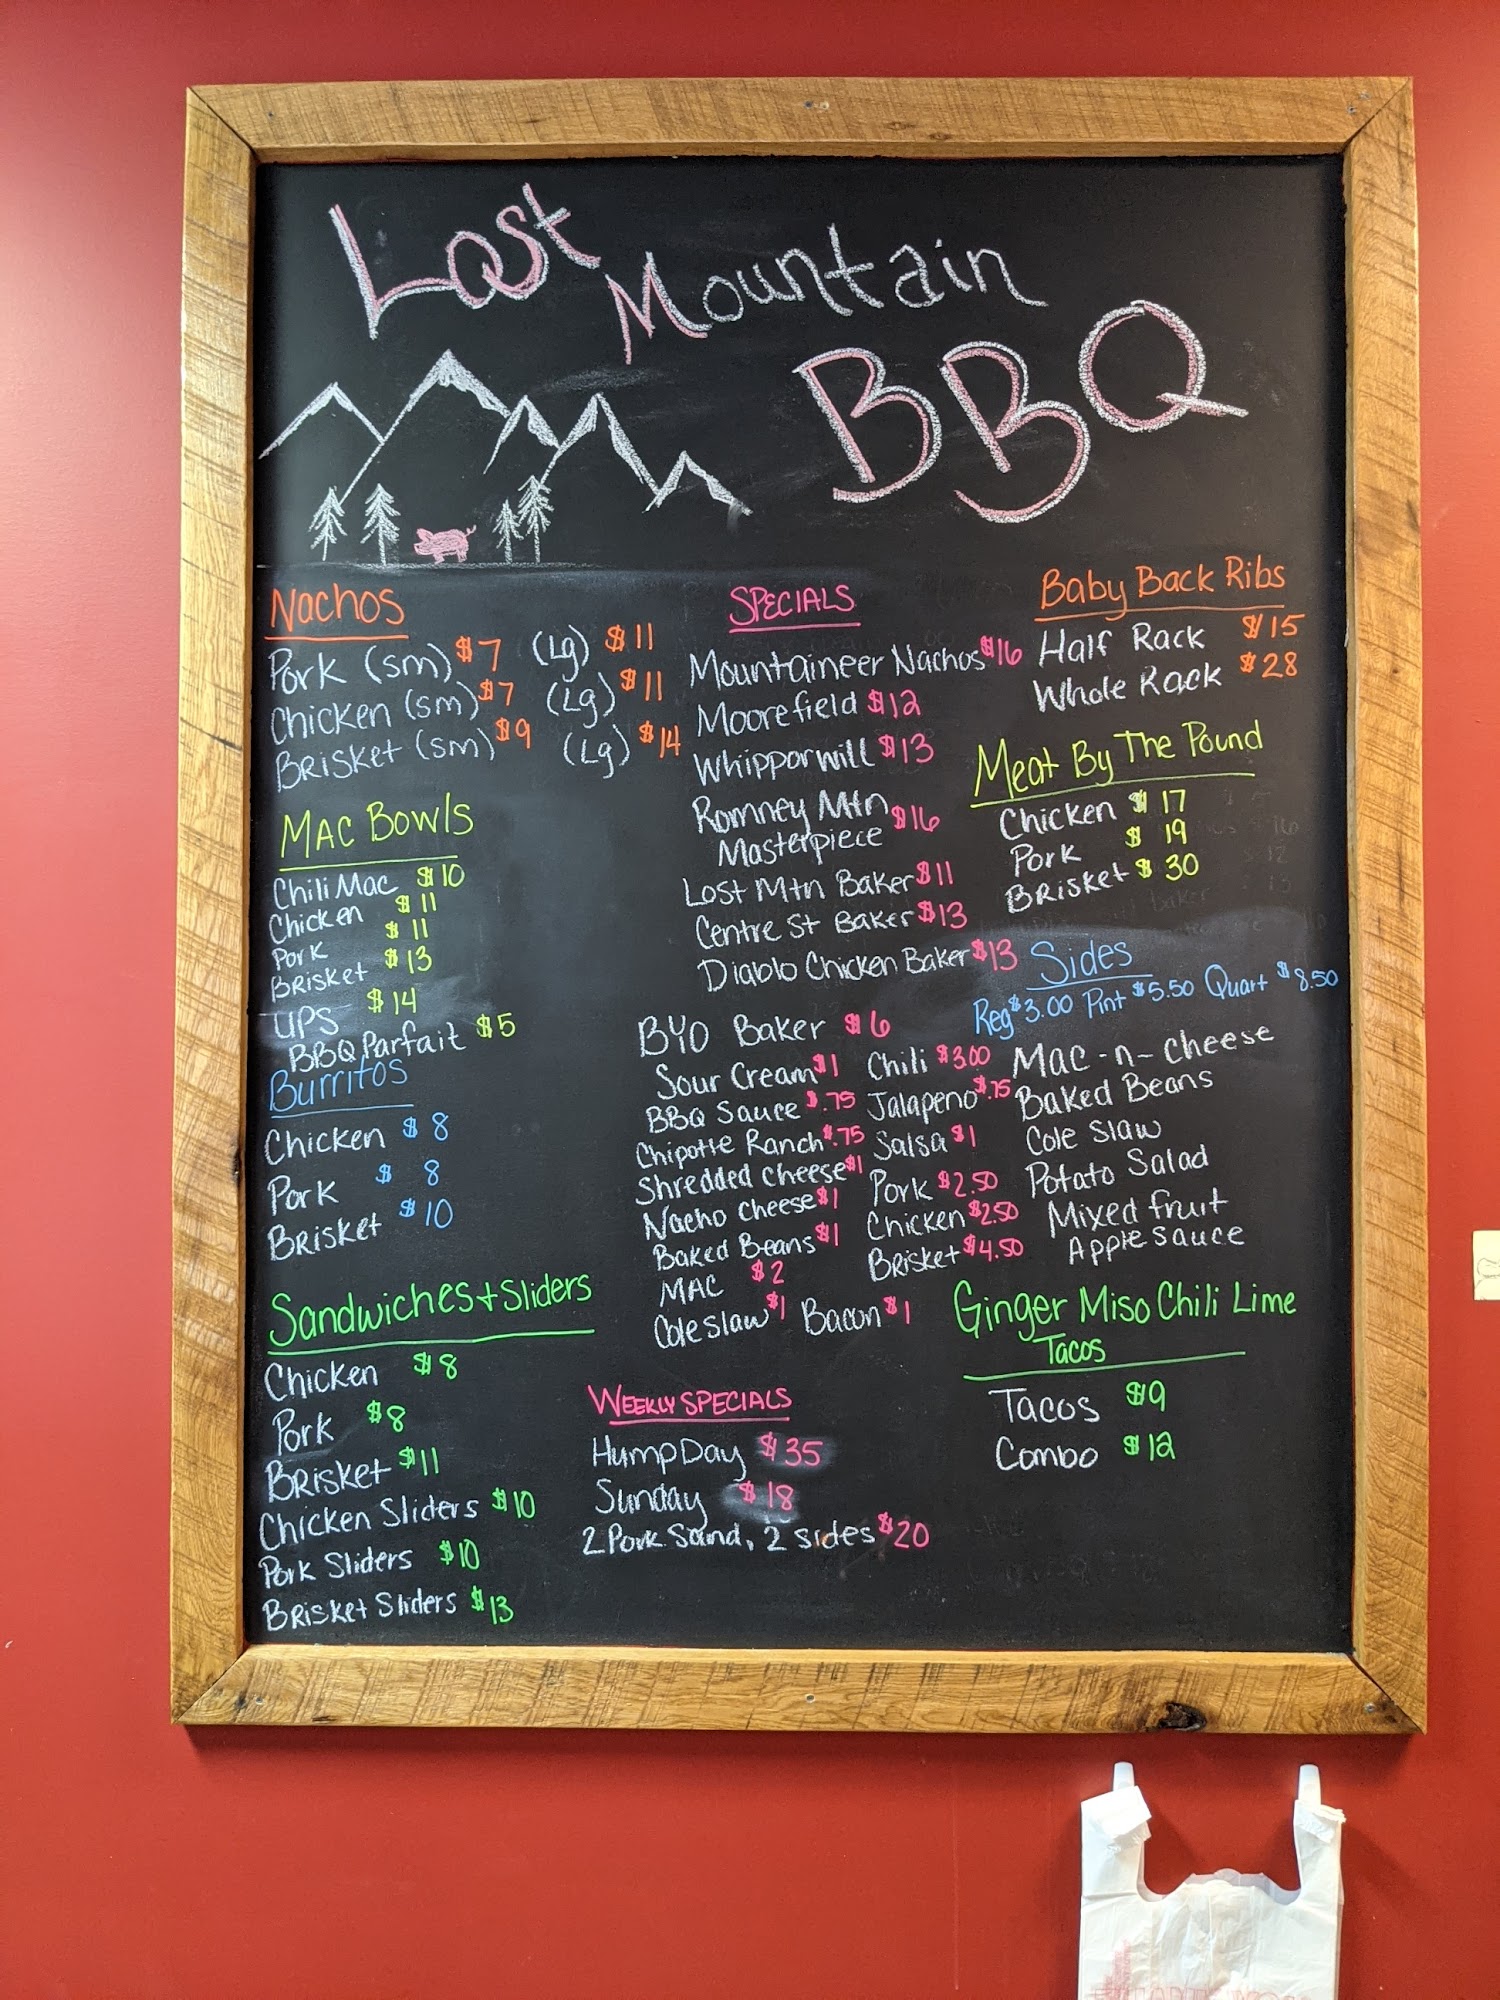 Lost
Mountain
BBQ
Nachos
Pork (sm) $7 (Lg) $11
Chicken (sm) $7 (Lg) $11
Brisket (sm) $9 (Lg) $14
Mac Bowls
Chili Mac $10
Chicken $11
Pork $11
Brisket $13
UPS $14
BBQ Parfait $5
Burritos
Chicken $8
Pork $8
Brisket $10
Sandwiches + Sliders
Chicken $8
Pork $8
Brisket $11
Chicken Sliders $10
Pork Sliders $10
Brisket Sliders $13
Specials
Mountaineer Nachos $16
Moorefield $12
Whipporwill $13
Romney Mtn
Masterpiece $16
Lost Mtn Baker $11
Centre St Baker $13
Diablo Chicken Baker $13
BYO Baker $6
Sour Cream $1 Chili $3.00
BBQ Sauce $.75 Jalapeno $.75
Chipotle Ranch $.75 Salsa $1
Shredded Cheese $1 Pork $2.50
Nacho Cheese $1 Chicken $2.50
Baked Beans $1 Brisket $4.50
MAC $2
Cole slaw $1 Bacon $1
Weekly Specials
Hump Day $35
Sunday $18
2 Pork Sand, 2 sides $20
Baby Back Ribs
Half Rack $15
Whole Rack $28
Meat By The Pound
Chicken $17
Pork $19
Brisket $30
Sides
Reg $3.00 Pint $5.50 Quart $8.50
Mac-n-cheese
Baked Beans
Cole slaw
Potato Salad
Mixed fruit
Apple sauce
Ginger Miso Chili Lime
Tacos
Tacos $9
Combo $12